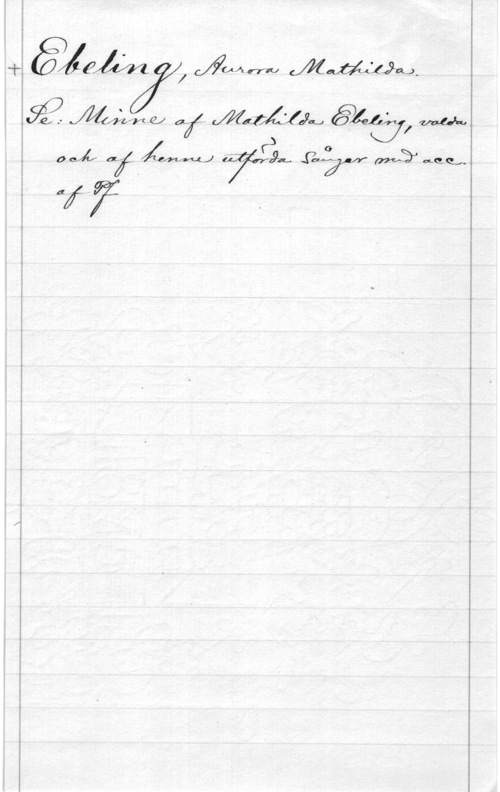 + Ebeling, Aurora Mathilda.
Se: Minne af Mathilda Ebeling, valda
och af henne utförda Sånger med acc.
af Pf